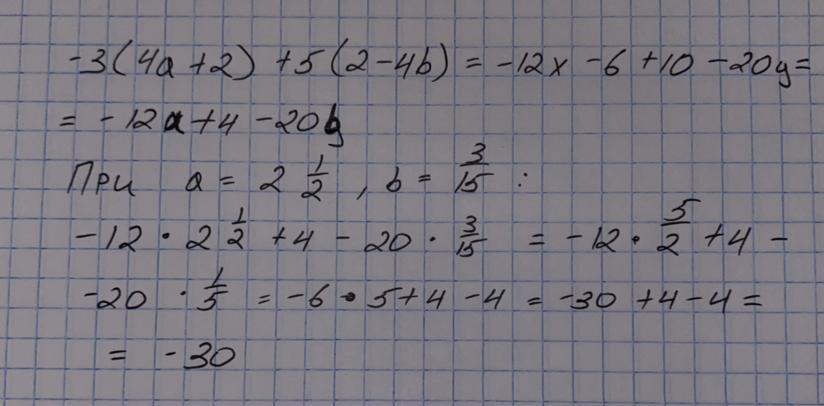 -3(4a+2) +5(2-4b) = -12x -6 +10 -20y =
= -12a+4 -20b
При a = 2 1/2 , b = 3/15 :
-12 · 2 1/2 +4 - 20 · 3/15 = -12 · 5/2 +4 -
-20 · 1/5 = -6 · 5+4 -4 = -30 +4-4 =
= -30